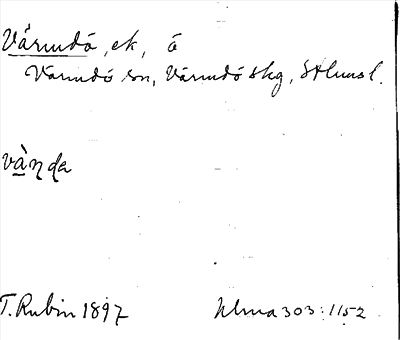 Värmdö, ek, ö
Värmdö sn, Värmdö skg, Sthlms l.
và̱n da
T. Rubin 1897 Ulma 303:1152